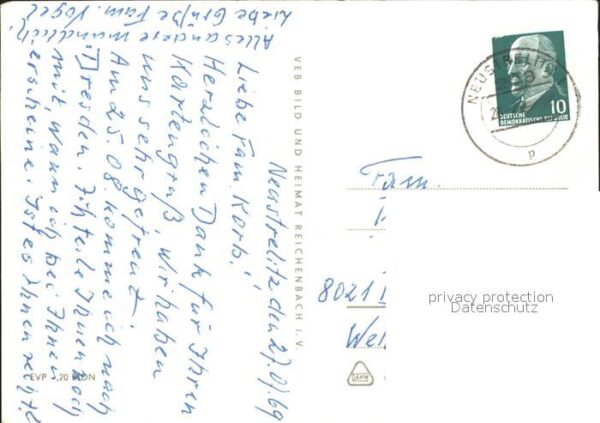 Neustrelitz den 27.07.69
Liebe Fam. Korb!
Herzlichen Dank für Ihren
Kartengruß, wir haben
uns sehr gefreut.
Am 25.08. komme ich nach
Dresden. Ich teile Ihnen noch
mit, wann ich bei Ihnen
erscheine. Ist es Ihnen recht?
Alles andere mündlich.
Liebe Grüße Fam. Vogel
VEB BILD UND HEIMAT REICHENBACH I. V.
EVP -,20 MDN
NEUSTRELITZ
10
DEUTSCHE
DEMOKRATISCHE REPUBLIK
p
Fam.
8021
Wel
privacy protection
Datenschutz